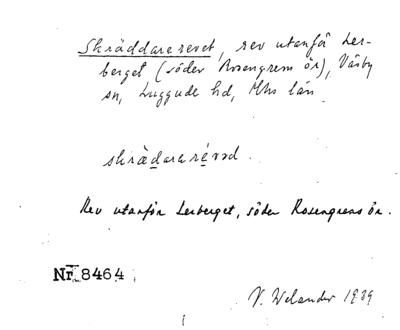 Skräddarerevet, rev utanför Ler-
berget (söder Rosengrens ör), Väsby
sn, Luggude hd, Mhs län
skrädararévəd.
Rev utanför Lerberget, söder Rosengrens ör.
Nr 8464
V. Welander 1939